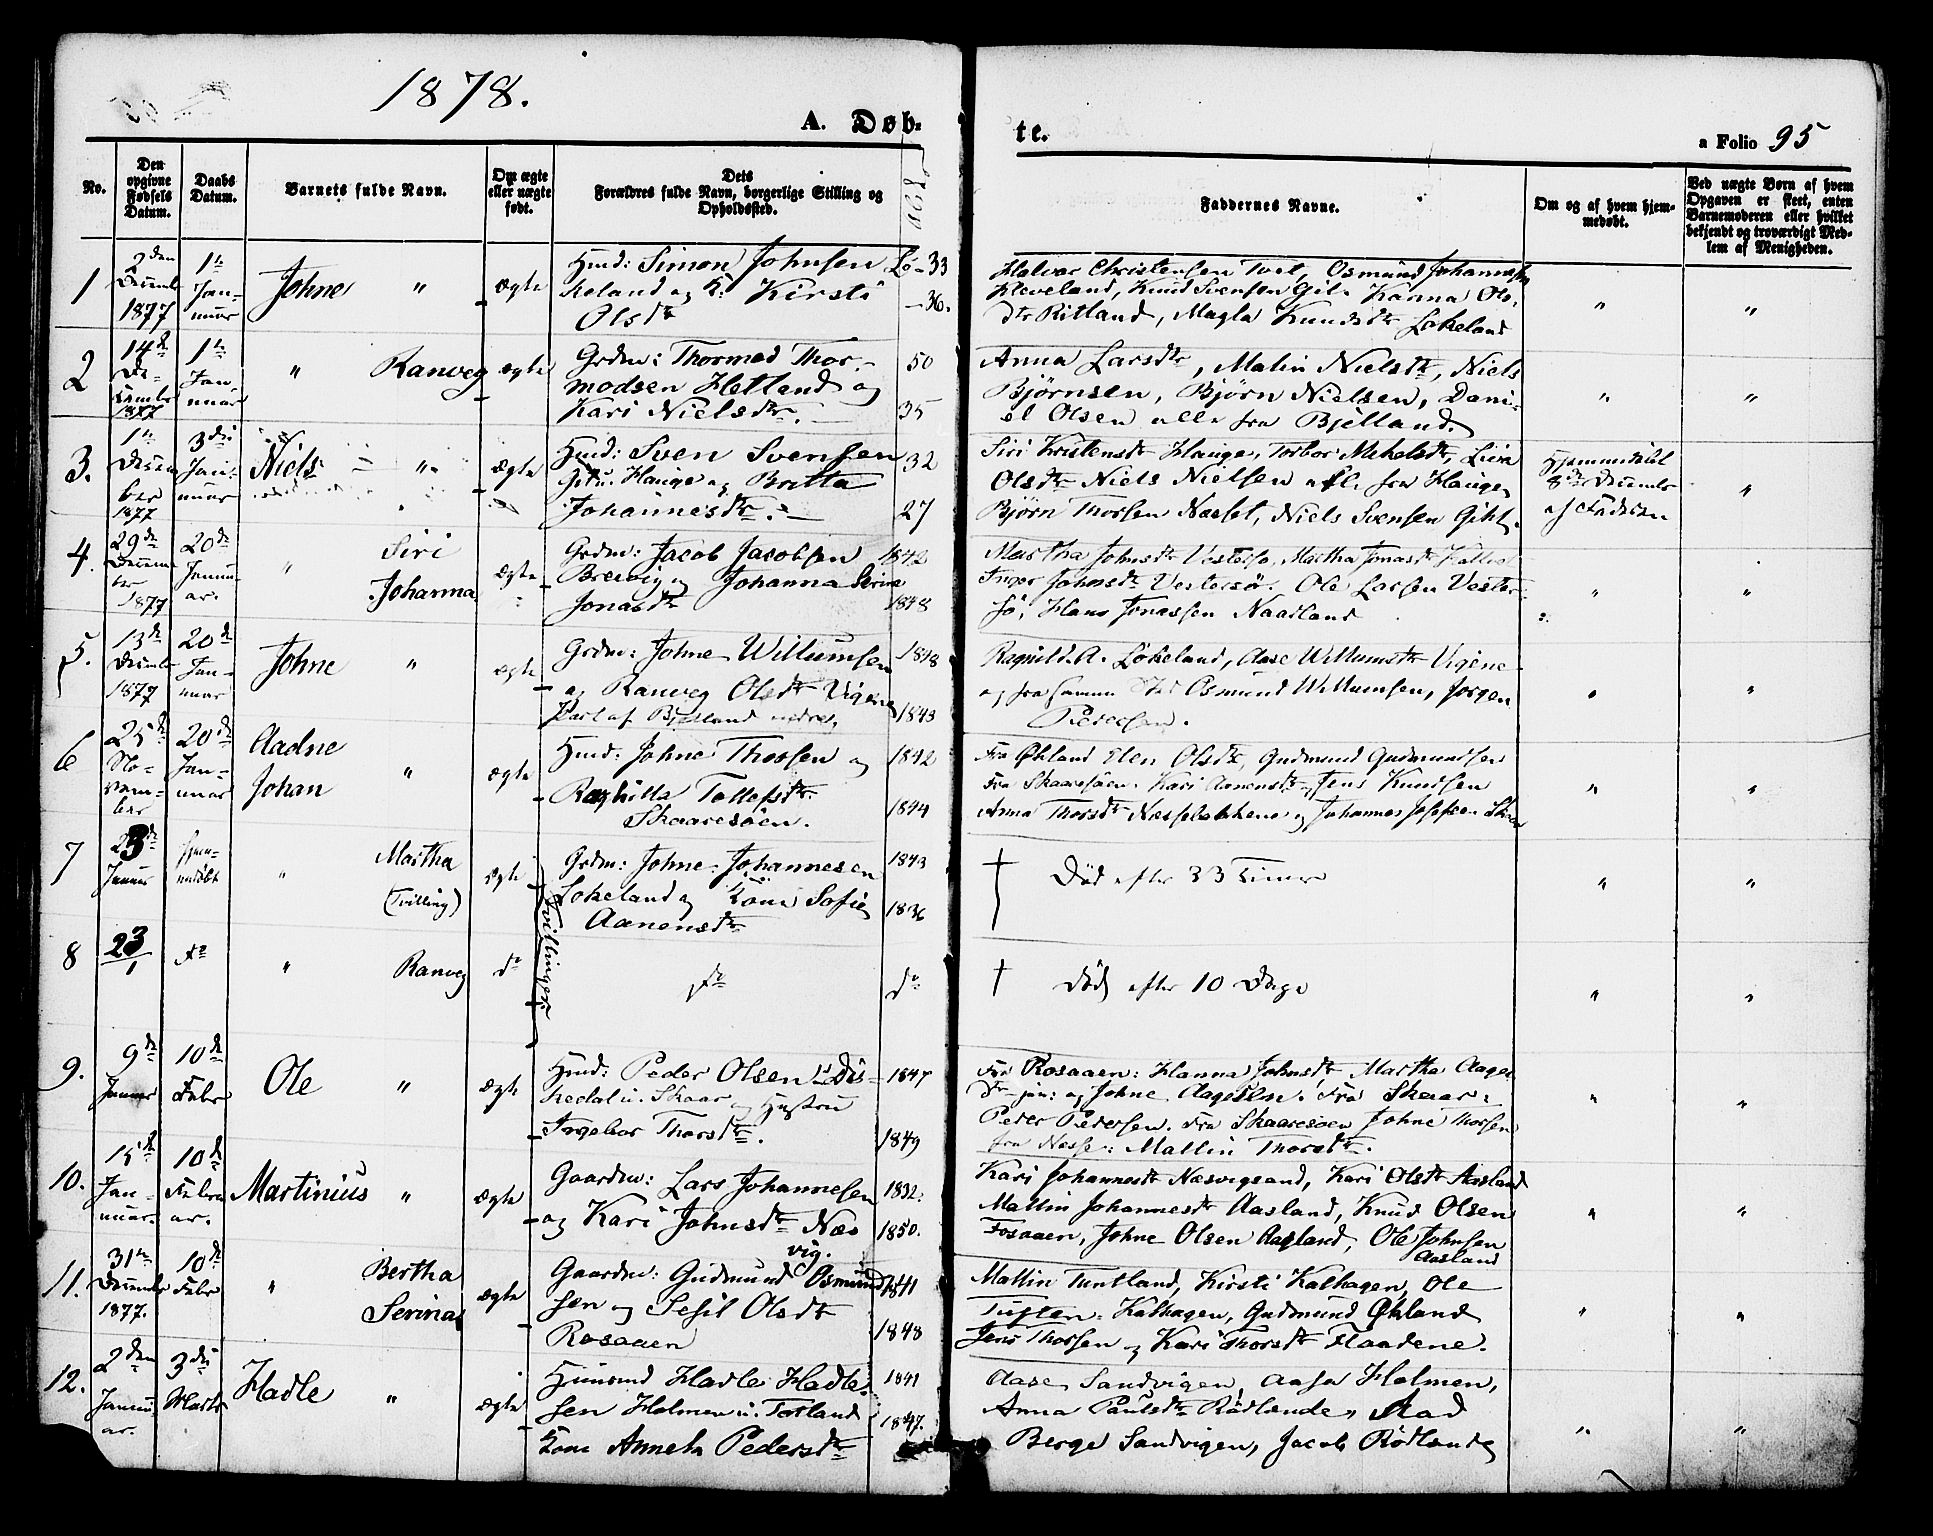 1878.
A. Døb-
te.
a Folio 95
No.
Den opgivne Fødsels Datum.
Daabs Datum.
Barnets fulde Navn.
Om ægte eller uægte født.
Dets Forældres fulde Navn, borgerlige Stilling og Opholdssted.
Faddernes Navne.
Om og af hvem hjemmedøbt.
Ved uægte Børn af hvem Opgaven er skeet, enten Barnemoderen eller hvilket bekjendt og troværdigt Medlem af Menigheden.
1
2den Decembr 1877
1te Januar
Johne "
ægte
Hmd: Simon Johnsen Lø- 33
keland og K: Kirsti -36.
Olsdtr
Halvar Christensen Tvet, Osmund Johannesen
Kleveland, Knud Svensen Gil. Kanna Ols-
dtr Ritland, Magla Knudsdtr Løkeland
" "
2
14de December 1877
1te Januar
" Ranveg
ægte
Grdm: Thormod Thor- 50
modsen Hetland og
Kari Nielsdtr. 35
Anna Larsdtr, Malin Nielsdtr, Niels
Bjørnsen, Bjørn Nielsen, Dani-
el Olsen alle fra Bjelland.
" "
3.
1te December 1877
3die Januar
Niels "
ægte
Hmd: Sven Svensen 32
Hauge og Britta
Johannesdtr. 27
Siri Kristensdt Hauge, Torbor Mekelsdt, Liva
Olsdtr Niels Nielsen alle fra Hauge,
Bjørn Thorsen Nesset, Niels Svensen
Hjemmedøbt
8de Decembr
af Faderen
"
4.
29de December 1877
20de Januar.
" Siri
Johanna
ægte
Grdm: Jacob Jacobsen 1842
Brevig og Johanna Serine
Jonasdtr 1848
Martha Johnsdt Vestersø, Martha Jonasdt
Inger Johnsdtr Vestersø. Ole Larsen Vester-
sø, Hans Jonassen Naadland
" "
5.
13de Decembr 1877
20de Januar
Johne "
ægte
Grdm: Johne Willumsen 1848
og Ranveg Olsdtr Vigene
Part af Bjelland nedre, 1843
Ragnild. A. Løkeland, Aase Willumsdtr Vigene
og fra samme Sted Osmund Willumsen, Jørgen
Pedersen.
" "
6
25de November
20de Januar
Aadne
Johan "
ægte
Hmd: Johne Thorsen og 1842
Tollefsdtr.
Skaaresøen. 1844
Fra Økland Elen Olsdtr, Gudmund Gudmundsen
Fra Skaaresøen. Kari Aanensdtr, Jens Knudsen
Anna Thorsdt Nesselækkene og Johannes Josefsen
" "
7
23de Januar
Hjemmedøbt
" Martha
(Tvilling)
ægte
Tvillinger
Grdm: Johne Johannesen 1843
Løkeland og Kone Sofie 1836
Aanensdtr
† Død efter 33 Timer
" "
8
23/1
do
" Ranveg
do
do
do
† Død efter 10 Dage
" "
9.
9de Januar
10de Febr
Ole "
ægte
Hmd: Peder Olsen 1847
u. Skaar og Hustru
Ingebor Thorsdtr. 1849
Fra Rosaaen: Hanna Johnsdt, Martha Aages
dtr jun: og Johne Aagesen. Fra Skaar:
Peder Pedersen. Fra Skaaresøen Johne Thorsen
fra Nesse: Mallin Thorsdtr.
" "
10.
15de Januar.
10de Februar.
Martinius "
ægte
Gaardm: Lars Johannesen 1832.
og Kari Johnsdtr Næs 1850.
vig.
Kari Johannesdt Næsvigsand, Kari Olsdt Aasland
Mallin Johannesdt Aasland, Knud Olsen
Fosaaen, Johne Olsen Aasland, Ole Johnsen
Aasland
" "
11.
31te Decembr 1877.
10de Febr
" Bertha
Serina
ægte
Gaardm: Gudmund Osmund 1841
sen og Sesil Olsdtr
Rosaaen 1848
Mallin Tuntland, Kirsti Kalhagen, Ole
Tuften, Kalhagen, Gudmund Økland
Jens Thorsen og Kari Thorsdtr Flaadene.
" "
12.
2den Januar.
3die Marts
Hadle "
ægte
Huusmd Hadle Hadle- 1841
sen Holmen u. Totland 1847.
Kone Anneta Pedersdtr
Aase Sandvigen, Aasa Holmen,
Anna Paulsdtr Rødlende,
Berge Sandvigen, Jacob Rødlende
" "